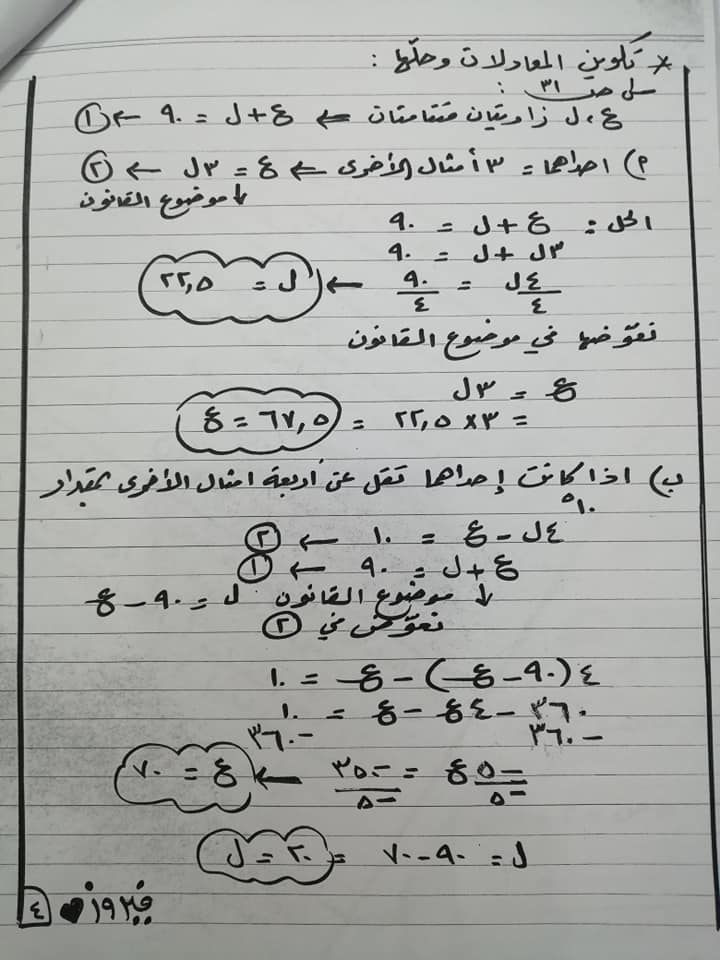 * تكوين المعادلات وحلّها :
س١ ص ٣١ :
ع ، ل زاويتان متتامتان ⇐ ع + ل = ٩٠ ← ①
م) احداهما = ٣ أمثال الأخرى ⇐ ع = ٣ل ← ②
↓ موضوع القانون
الحل : ع + ل = ٩٠
٣ل + ل = ٩٠
٤ل/٤ = ٩٠/٤ ← ل = ٢٢,٥
نعوّضها في موضوع القانون
ع = ٣ل
= ٣ × ٢٢,٥ = ٦٧,٥ = ع
ب) اذا كانت إحداهما تقل عن أربعة امثال الأخرى بمقدار
١٠°
٤ل - ع = ١٠ ← ②
ع + ل = ٩٠ ← ①
↓ موضوع القانون ل = ٩٠ - ع
نعوّض في ②
٤(٩٠ - ع) - ع = ١٠
٣٦٠ - ٤ع - ع = ١٠
-٣٦٠ -٣٦٠
-٥ع/-٥ = -٣٥٠/-٥ ← ع = ٧٠
ل = ٩٠ - ٧٠ = ٢٠ = ل
فيروز ♥ ٤